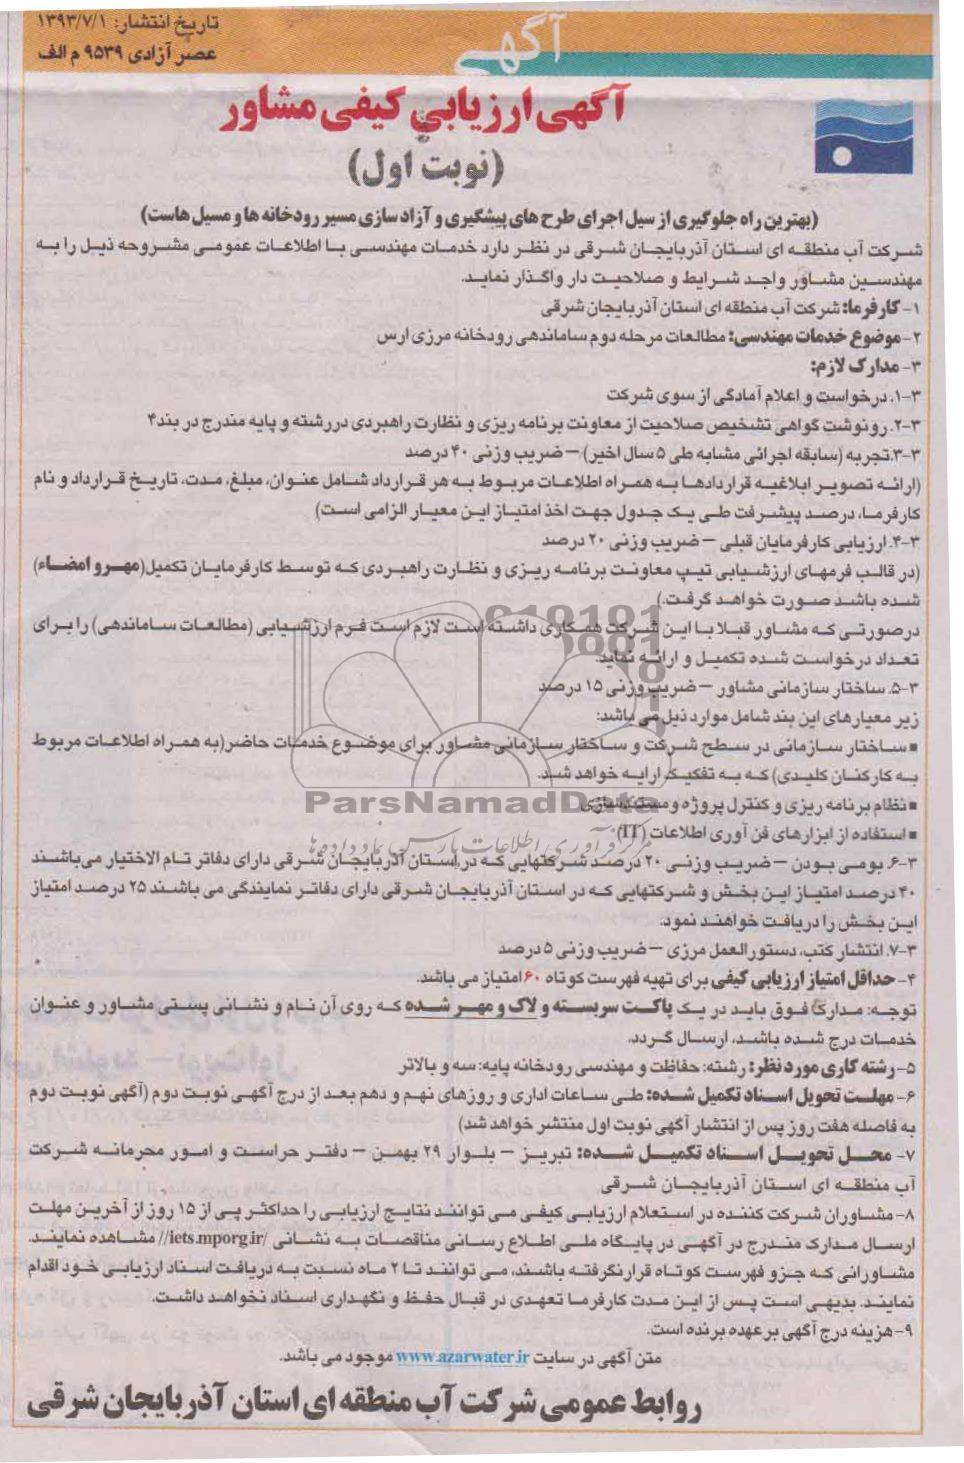 تاریخ انتشار: ۱۳۹۳/۷/۱
عصر آزادی ۹۵۳۹ م الف
آگهی
آگهی ارزیابی کیفی مشاور
(نوبت اول)
(بهترین راه جلوگیری از سیل اجرای طرح های پیشگیری و آزاد سازی مسیر رودخانه ها و مسیل هاست)
شرکت آب منطقه ای استان آذربایجان شرقی در نظر دارد خدمات مهندسی با اطلاعات عمومی مشروحه ذیل را به
مهندسین مشاور واجد شرایط و صلاحیت دار واگذار نماید.
۱- کارفرما: شرکت آب منطقه ای استان آذربایجان شرقی
۲-موضوع خدمات مهندسی: مطالعات مرحله دوم ساماندهی رودخانه مرزی ارس
۳- مدارک لازم:
۳-۱. درخواست و اعلام آمادگی از سوی شرکت
۳-۲. رونوشت گواهی تشخیص صلاحیت از معاونت برنامه ریزی و نظارت راهبردی دررشته و پایه مندرج در بند۴
۳-۳.تجربه (سابقه اجرائی مشابه طی ۵ سال اخیر) – ضریب وزنی ۴۰ درصد
(ارائه تصویر ابلاغیه قراردادها به همراه اطلاعات مربوط به هر قرارداد شامل عنوان، مبلغ، مدت، تاریخ قرارداد و نام
کارفرما، درصد پیشرفت طی یک جدول جهت اخذ امتیاز این معیار الزامی است)
۳-۴. ارزیابی کارفرمایان قبلی – ضریب وزنی ۲۰ درصد
(در قالب فرمهای ارزشیابی تیپ معاونت برنامه ریزی و نظارت راهبردی که توسط کارفرمایان تکمیل(مهر و امضاء)
شده باشد صورت خواهد گرفت.)
درصورتی که مشاور قبلا با این شرکت همکاری داشته است لازم است فرم ارزشیابی (مطالعات ساماندهی) را برای
تعداد درخواست شده تکمیل و ارائه نماید.
۳-۵. ساختار سازمانی مشاور – ضریب وزنی ۱۵ درصد
زیر معیارهای این بند شامل موارد ذیل می باشد:
▪ ساختار سازمانی در سطح شرکت و ساختار سازمانی مشاور برای موضوع خدمات حاضر(به همراه اطلاعات مربوط
به کارکنان کلیدی) که به تفکیک ارایه خواهد شد.
▪ نظام برنامه ریزی و کنترل پروژه و مستندسازی
ParsNamadData
▪ استفاده از ابزارهای فن آوری اطلاعات (IT)
مرکز فرآوری اطلاعات پارس نماد داده ها
۳-۶. بومی بودن – ضریب وزنی ۲۰ درصد شرکتهایی که در استان آذربایجان شرقی دارای دفاتر تام الاختیار می‌باشند
۴۰ درصد امتیاز این بخش و شرکتهایی که در استان آذربایجان شرقی دارای دفاتر نمایندگی می باشند ۲۵ درصد امتیاز
این بخش را دریافت خواهند نمود.
۳-۷. انتشار کتب، دستورالعمل مرزی – ضریب وزنی ۵ درصد
۴- حداقل امتیاز ارزیابی کیفی برای تهیه فهرست کوتاه ۶۰ امتیاز می باشد.
توجه: مدارک فوق باید در یک پاکت سربسته و لاک و مهر شده که روی آن نام و نشانی پستی مشاور و عنوان
خدمات درج شده باشد، ارسال گردد.
۵- رشته کاری مورد نظر: رشته: حفاظت و مهندسی رودخانه پایه: سه و بالاتر
۶- مهلت تحویل اسناد تکمیل شده: طی ساعات اداری و روزهای نهم و دهم بعد از درج آگهی نوبت دوم (آگهی نوبت دوم
به فاصله هفت روز پس از انتشار آگهی نوبت اول منتشر خواهد شد)
۷- محل تحویل اسناد تکمیل شده: تبریز – بلوار ۲۹ بهمن – دفتر حراست و امور محرمانه شرکت
آب منطقه ای استان آذربایجان شرقی
۸- مشاوران شرکت کننده در استعلام ارزیابی کیفی می توانند نتایج ارزیابی را حداکثر پی از ۱۵ روز از آخرین مهلت
ارسال مدارک مندرج در آگهی در پایگاه ملی اطلاع رسانی مناقصات به نشانی /iets.mporg.ir// مشاهده نمایند.
مشاورانی که جزو فهرست کوتاه قرار نگرفته باشند، می توانند تا ۲ ماه نسبت به دریافت اسناد ارزیابی خود اقدام
نمایند. بدیهی است پس از این مدت کارفرما تعهدی در قبال حفظ و نگهداری اسناد نخواهد داشت.
۹- هزینه درج آگهی بر عهده برنده است.
متن آگهی در سایت www.azarwater.ir موجود می باشد.
روابط عمومی شرکت آب منطقه ای استان آذربایجان شرقی